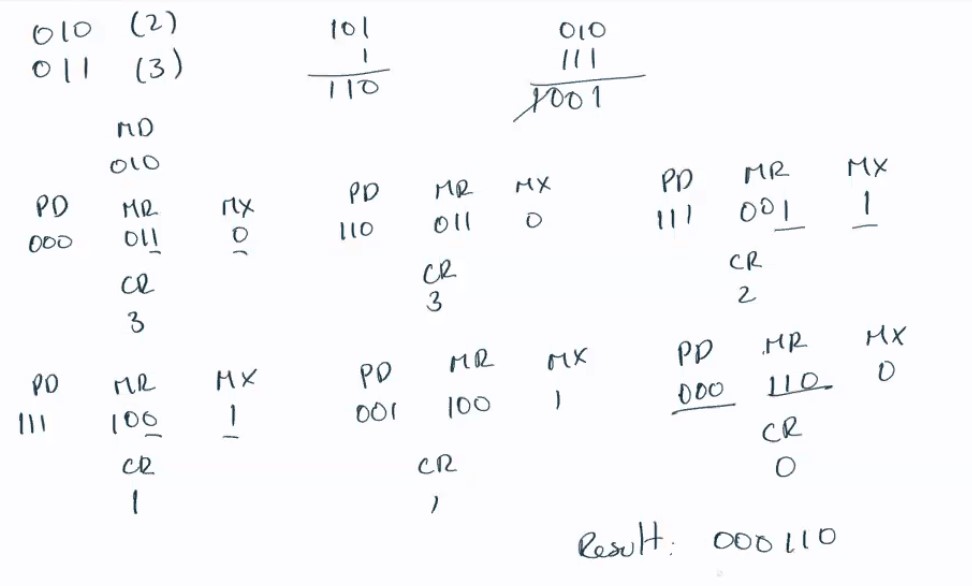 010 (2)
011 (3)
101
1
110
010
111
1001
MD
010
PD MR MX
000 011 0
CR
3
PD MR MX
110 011 0
CR
3
PD MR MX
111 001 1
CR
2
PD MR MX
111 100 1
CR
1
PD MR MX
001 100 1
CR
1
PD MR MX
000 110 0
CR
0
Result: 000110